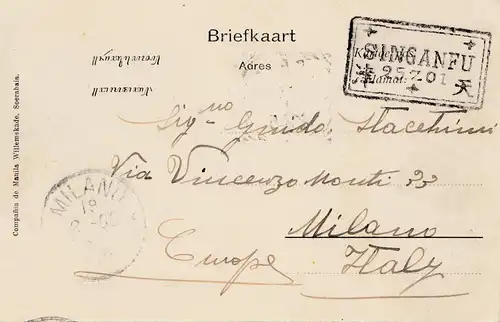 Briefkaart
Adres
SINGANFU
25 Z 01
津 天
Sig.no Guido
Via Vincenzo Monti 33
Milano
Italy
Europe
MILANO
Compañia de Manila Willemskade, Soerabaia.